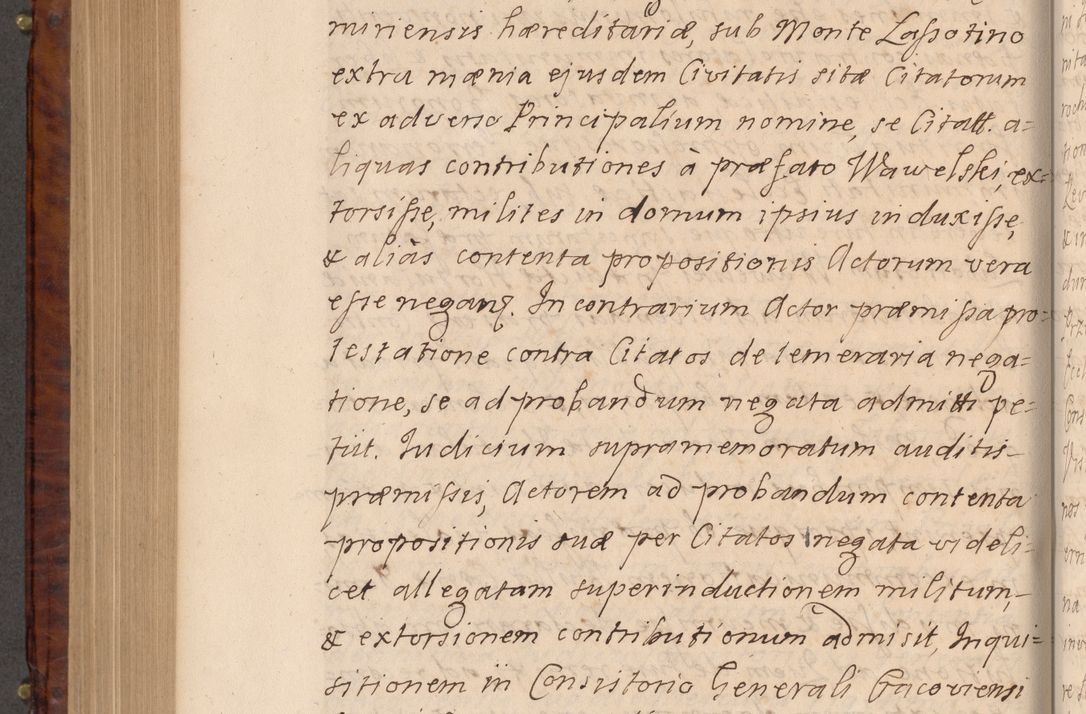 miriensis hæreditariæ, sub Monte Lassotino
extra mænia ejusdem Civitatis sitæ Citatorum
ex adverso Principalium nomine, se Citatt. a=
liquas contributiones à præfato Wawelski, ex=
torsisse, milites in domum ipsius induxisse,
& aliàs contenta propositionis Actorum vera
esse neganq. In contrarium Actor præmissa pro=
testatione contra Citatos de temeraria nega=
tione, se ad probandum negata admitti pe=
tiit. Iudicium supramemoratum auditis
præmissis, Actorem ad probandum contenta
propositionis suæ per Citatos negata videli=
cet allegatam superinductionem militum,
& extorsionem contributionum admisit, Inqui=
sitionem in Consistorio Generali Cracoviensi